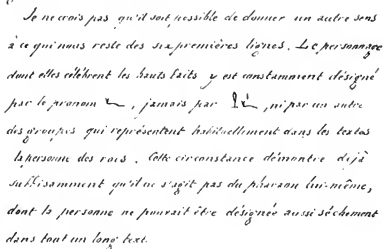 Je ne crois pas qu'il soit possible de donner un autre sens
à ce qui nous reste des six premières lignes. Le personnage
dont elles célèbrent les hauts faits y est constamment désigné
par le pronom , jamais par , ni par un autre
des groupes qui représentent habituellement dans les textes
la personne des rois. Cette circonstance démontre déjà
suffisamment qu'il ne s'agit pas du pharaon lui-même,
dont la personne ne pourrait être désignée aussi sèchement
dans tout un long text.